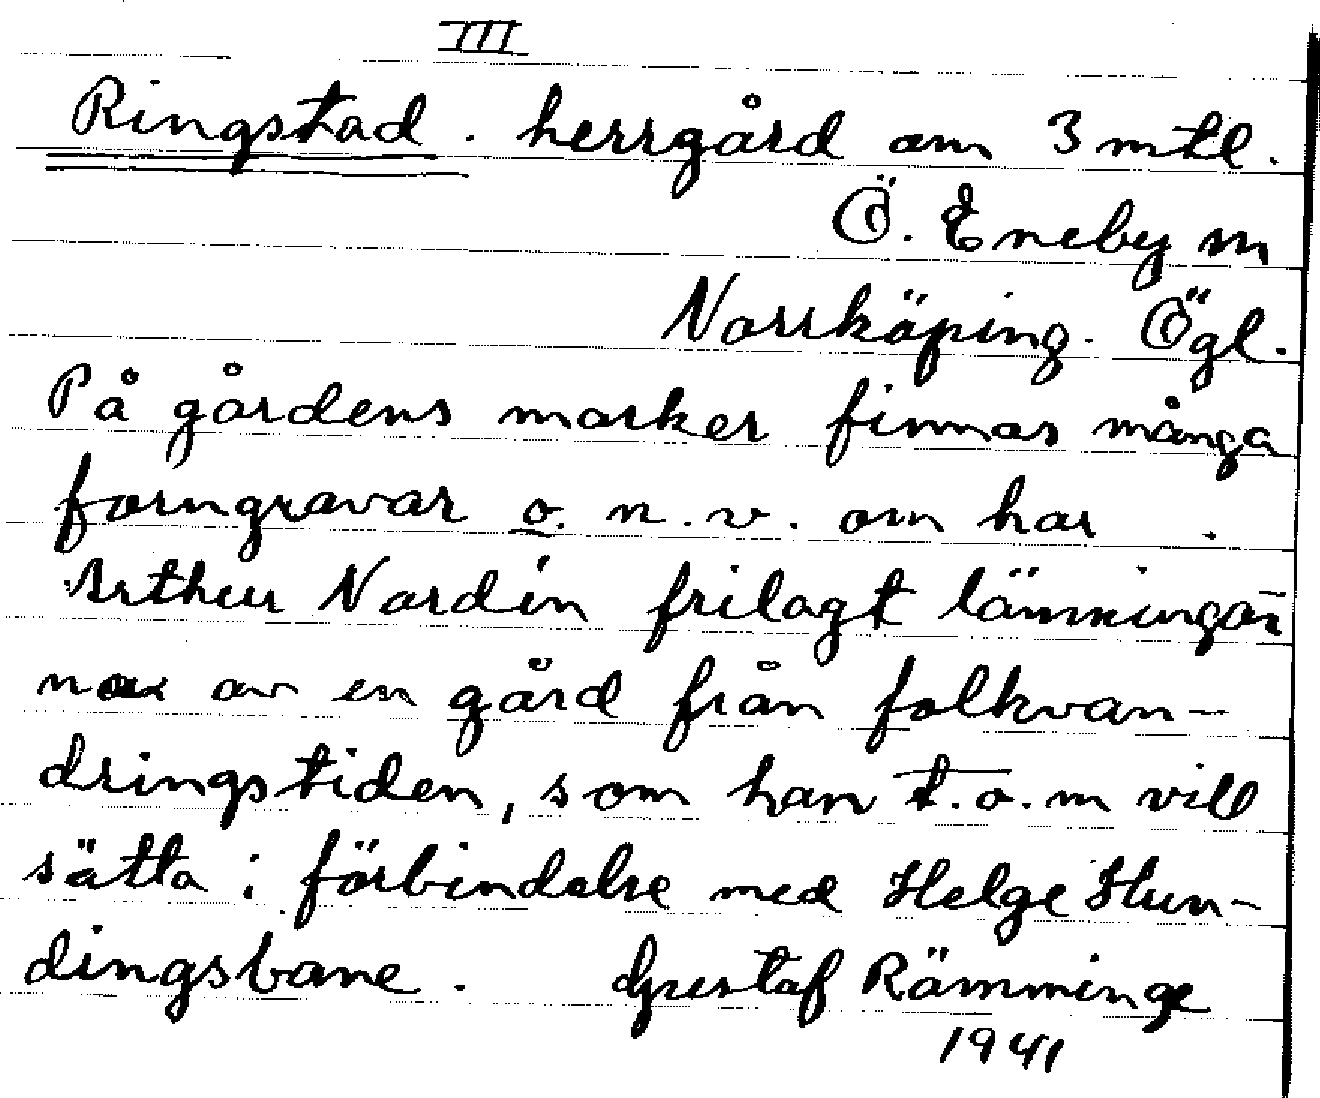 III
Ringstad. herrgård om 3 mtl.
Ö. Eneby sn
Norrköping. Ögl.
På gårdens marker finnas många
forngravar o. n. v. om har
Arthur Nordén frilagt lämningar
na av en gård från folkvan-
dringstiden, som han t.o.m vill
sätta i förbindelse med Helge Hun-
dingsbane. Gustaf Rämminge
1941